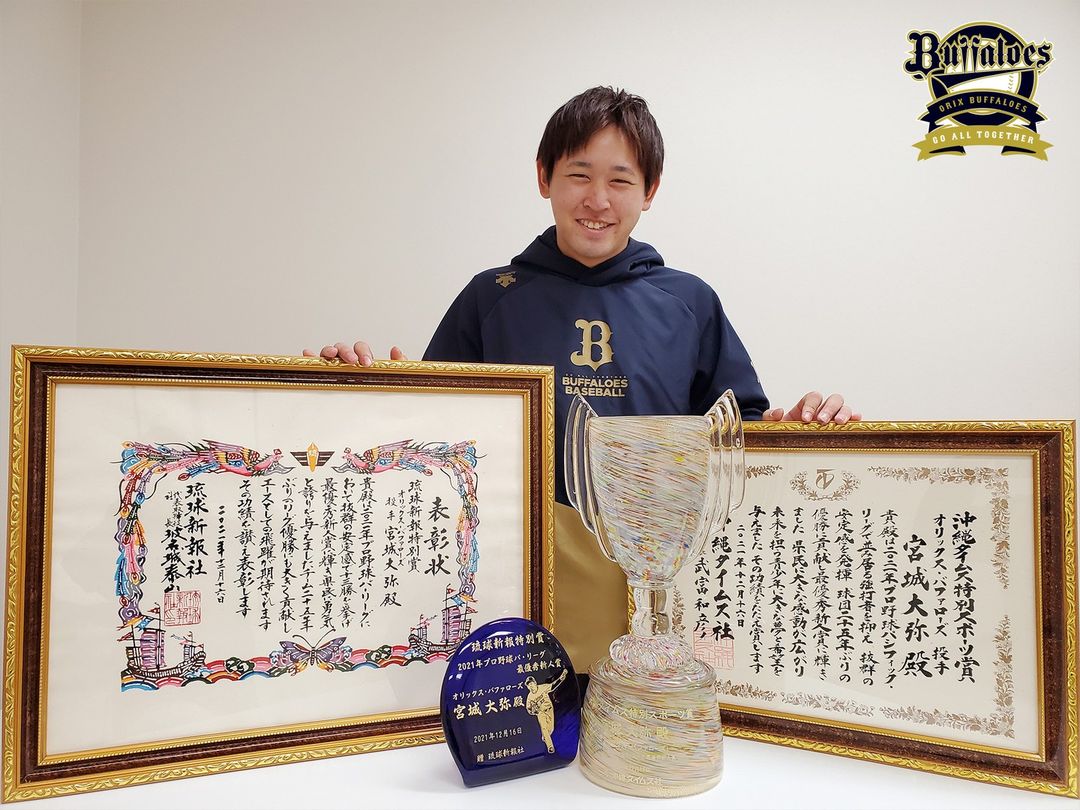 Buffaloes
ORIX BUFFALOES
GO ALL TOGETHER
B
BUFFALOES
BASEBALL
表彰状
琉球新報特別賞
オリックス・バファローズ
投手 宮城大弥殿
貴殿は二〇二一年プロ野球パ・リーグに
おいて抜群の安定感で十三勝を挙げ
最優秀新人賞に輝き県民に勇気
と誇りを与えました チーム二十五年
ぶりのリーグ優勝にも大きく貢献し
エースとしての飛躍が期待されます
その功績を讃え表彰します
二〇二一年十二月十六日
琉球新報社
琉球新報特別賞
2021年プロ野球パ・リーグ
最優秀新人賞
オリックス・バファローズ
宮城 大弥 殿
2021年12月16日
贈 琉球新報社
沖縄タイムス特別スポーツ賞
オリックス・バファローズ 投手
宮城大弥殿
貴殿は二〇二一年プロ野球パシフィック・
リーグで並居る強打者を抑え 抜群の
安定感を発揮 球団二十五年ぶりの
優勝に貢献し最優秀新人賞に輝き
ました 県民に大きな感動が広がり
来来を担う青少年に大きな夢と希望を
与えました その功績をたたえ賞します
二〇二一年十二月十六日
縄タイムス社
武富和彦
ス特別スポーツ賞
タイムス社